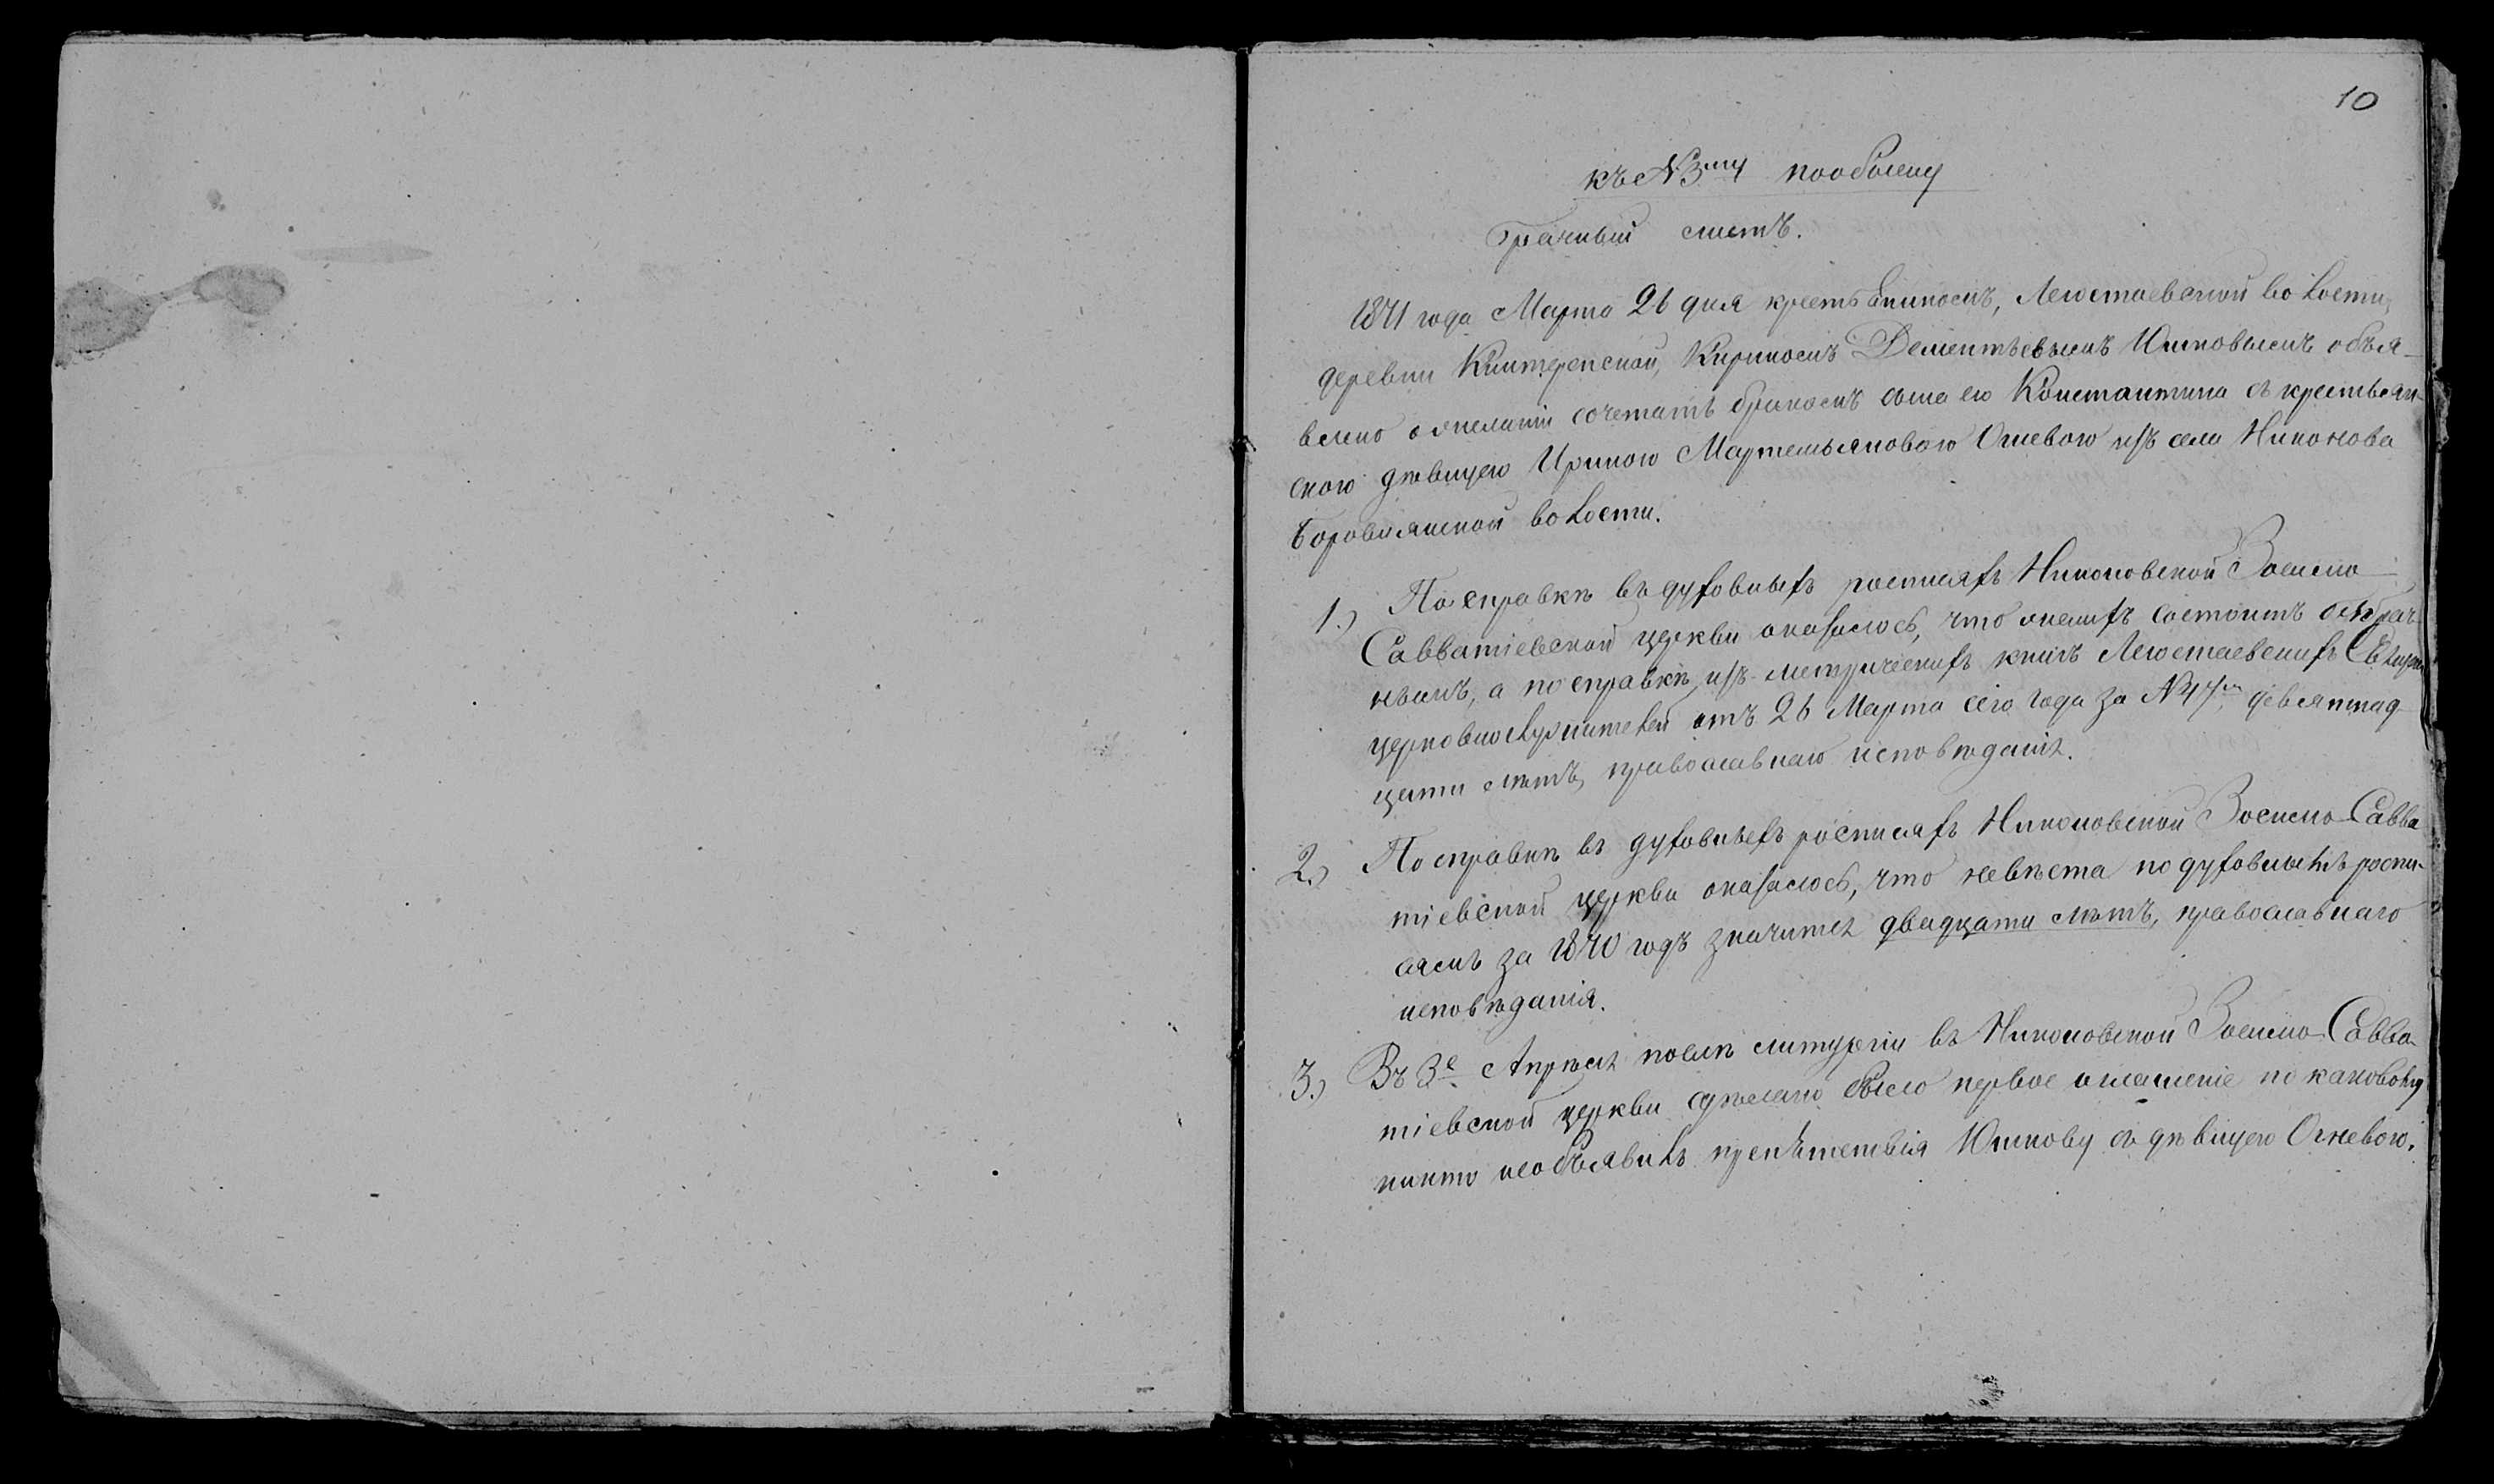 10
къ №3му пообыску
Брачный листъ.
1871 года Марта 26 дня крестьяниномъ, Легостаевской волости,
деревни Китерепской, Кирикомъ Дементьевымъ Юшковымъ объя-
влено о желаніи сочетать бракомъ сына его Константина съ крестьян-
скою дѣвицею Ириною Мартемьяновою Огневою изъ села Никонова
Боровлянской волости.
1.) По справкѣ въ духовныхъ росписяхъ Никоновской Зосимо-
Савватіевской церкви оказалось, что женихъ состоитъ безбрач-
нымъ, а по справкѣ, изъ метрическихъ книгъ Легостаевскихъ
церковнослужителей отъ 26 Марта сего года за №47м, девятнад-
цати лѣтъ, православнаго исповѣданія.
2.) По справкѣ въ духовныхъ росписяхъ Никоновской Зосимо-Савва-
тіевской церкви оказалось, что невѣста по духовнымъ роспи-
сямъ за 1870 годъ значится двадцати лѣтъ, православнаго
исповѣданія.
3.) Въ 3е Апрѣля послѣ литургіи въ Никоновской Зосимо-Савва-
тіевской церкви сдѣлано было первое оглашеніе по каковому
никто необъявилъ препятствія Юшкову съ дѣвицею Огневою.